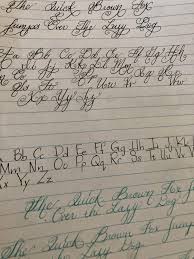 The Quick Brown Fox
Jumps Over The Lazy Dog
Aa Bb Cc Dd Ee Ff Gg Hh
Ii Jj Kk Ll Mm
Uu Vv Ww
Xx Yy Zz
Bb Cc Dd Ee Ff Gg Hh Ii Jj Kk
Mm Nn Oo Pp Qq Rr Ss Tt Uu Vv Ww
Xx Yy Zz
The Quick Brown Fox Jum
Over the Lazy Dog
The Quick Brown Fox Jum